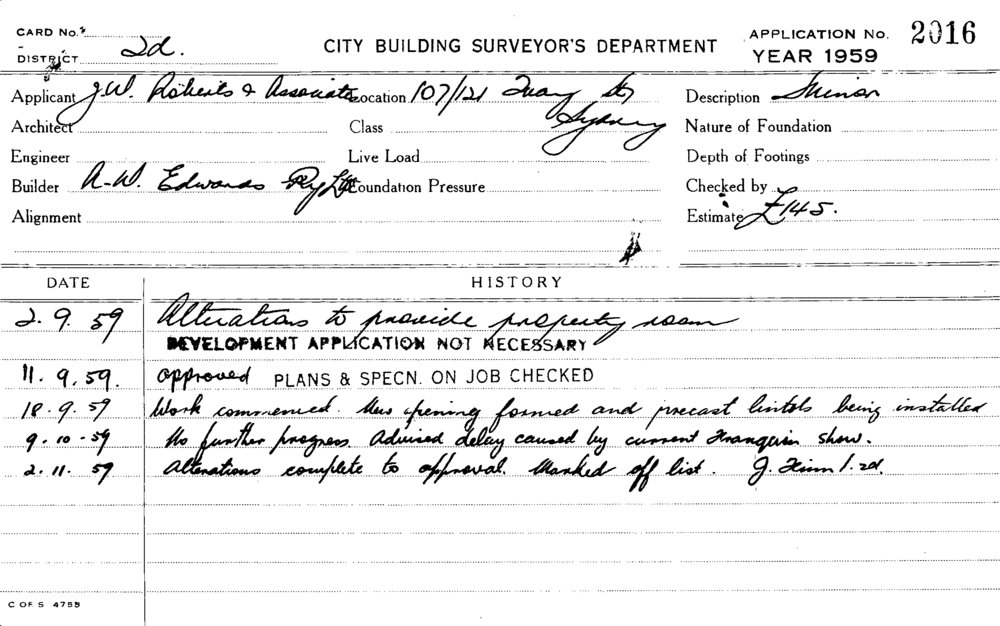 CARD No.
DISTRICT 2d.
CITY BUILDING SURVEYOR'S DEPARTMENT
APPLICATION No. 2016
YEAR 1959
Applicant J.W. Roberts & Associates Location 107/121 Quay St Sydney Description Minor
Architect Class Nature of Foundation
Engineer Live Load Depth of Footings
Builder A.W. Edwards Pty Ltd Foundation Pressure Checked by
Alignment Estimate £145.
DATE HISTORY
2. 9. 59 Alterations to provide property room
DEVELOPMENT APPLICATION NOT NECESSARY
11. 9. 59. approved PLANS & SPECN. ON JOB CHECKED
18. 9. 59 Work commenced. New opening formed and precast lintols being installed
9. 10. 59 No further progress. Advised delay caused by current Franquin show.
2. 11. 59 Alterations complete to approval. Marked off list. J. 2d.
C OF S 4755